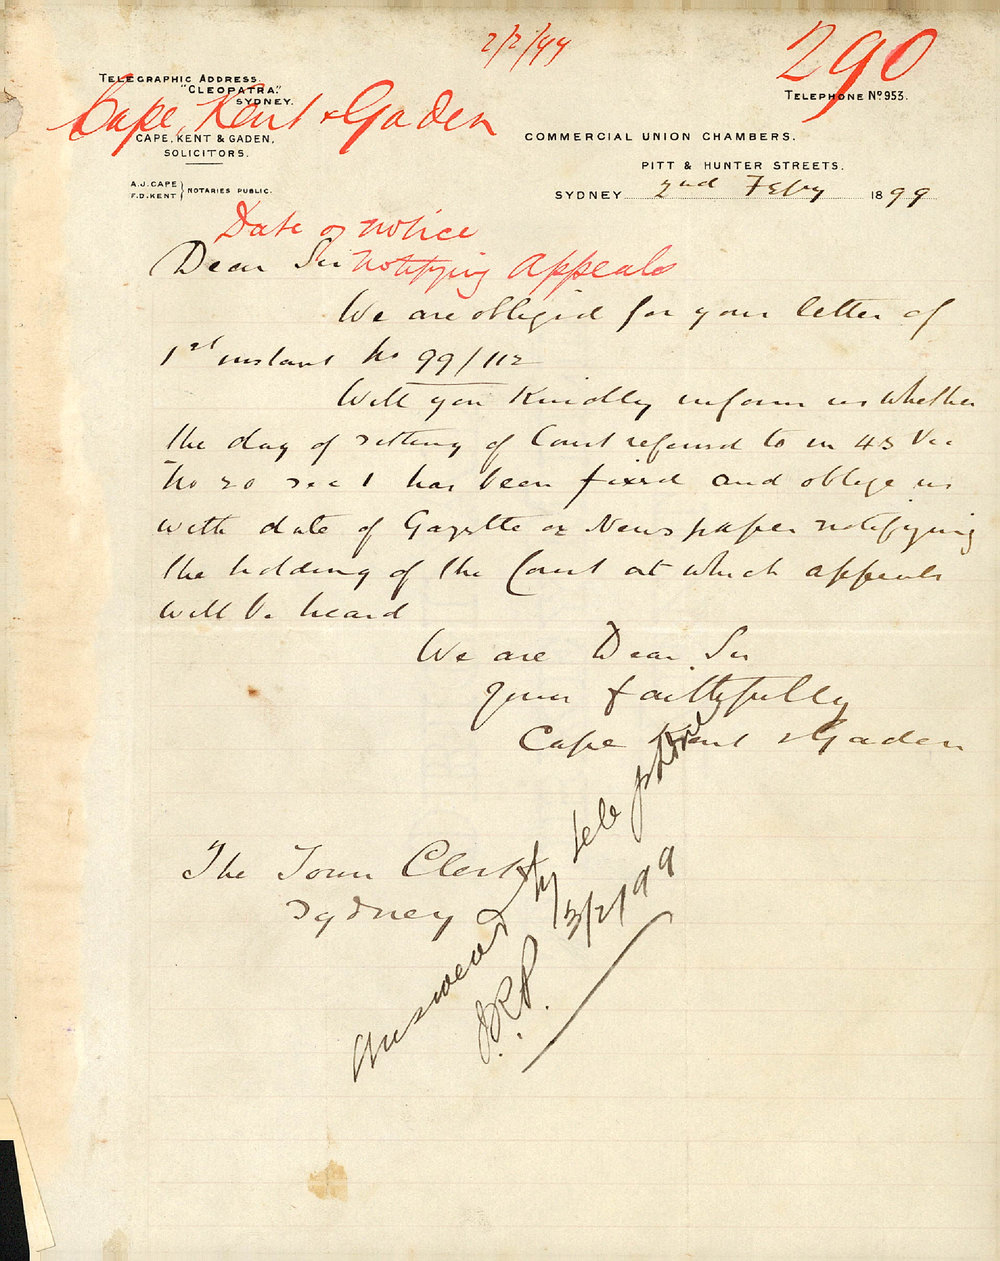 2/2/99
290
TELEGRAPHIC ADDRESS.
"CLEOPATRA."
SYDNEY.
TELEPHONE No 953.
Cape, Kent & Gaden
CAPE, KENT & GADEN,
SOLICITORS.
COMMERCIAL UNION CHAMBERS.
PITT & HUNTER STREETS.
A.J. CAPE
F.D. KENT } NOTARIES PUBLIC.
SYDNEY 2nd Feby 1899
Date of notice
notifying Appeals
Dear Sir
We are obliged for your letter of
1st instant No 99/112
Will you kindly inform us whether
the day of sitting of Court referred to in 43 Vic
No 20 sec 1 has been fixed and oblige us
with date of Gazette or Newspaper notifying
the holding of the Court at which appeals
will be heard
We are Dear Sir
Yours faithfully
Cape Kent & Gaden
The Town Clerk
Sydney
Answered by telephone
3/2/99